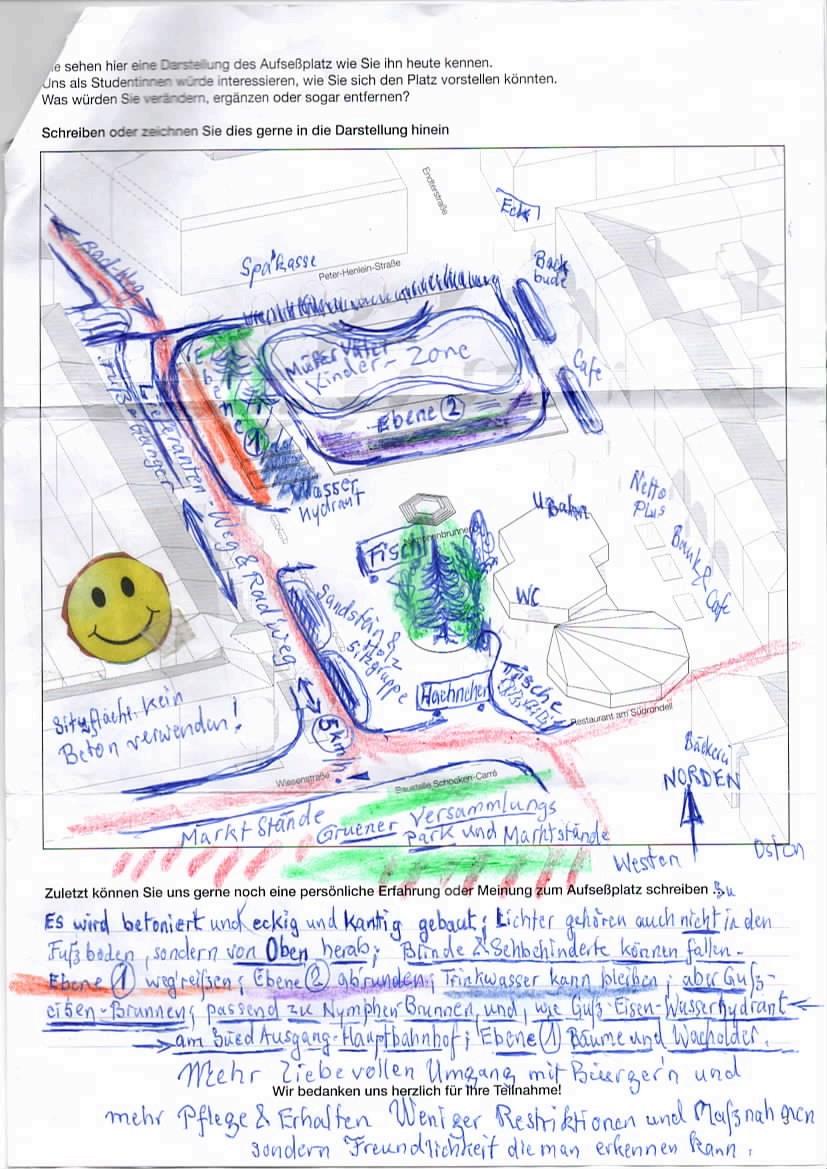 sehen hier eine Darstellung des Aufseßplatz wie Sie ihn heute kennen.
Uns als Studentinnen würde interessieren, wie Sie sich den Platz vorstellen könnten.
Was würden Sie verändern, ergänzen oder sogar entfernen?
Schreiben oder zeichnen Sie dies gerne in die Darstellung hinein
Endterstraße
Eck
Radweg
Sparkasse
Peter-Henlein-Straße
Back
bude
Mutter Vater
Kinder-Zone
Ebene 1
Ebene 2
Cafe
Fußgänger
Lieferanten Weg & Radweg
Wasser
hydrant
Netto
Plus
Bank & Cafe
Nymphenbrunnen
Fisch
UBahn
WC
Sandstein &
Holz
Sitzgruppe
Haehnchen
Tische
Restaurant am Südrondell
Sitzfläche kein
Beton verwenden!
5 km/h!
Wiesenstraße
Baustelle Schocken-Carré
Bäckerei
NORDEN
Markt Stände
Gruener Versammlungs
Park und Marktstände
Westen
Osten
Zuletzt können Sie uns gerne noch eine persönliche Erfahrung oder Meinung zum Aufseßplatz schreiben
Es wird betoniert und eckig und kantig gebaut; Lichter gehören auch nicht in den
Fußboden, sondern von Oben herab; Blinde & Sehbehinderte können fallen.
Ebene 1 wegreißen; Ebene 2 abrunden; Trinkwasser kann bleiben; aber Guß-
eisen-Brunnen; passend zu NymphenBrunnen, und, wie Guß-Eisen-Wasserhydrant
am Sued Ausgang-Hauptbahnhof; Ebene 1 Bäume und Wacholder.
Mehr Liebevollen Umgang mit Büerger'n und
Wir bedanken uns herzlich für Ihre Teilnahme!
mehr Pflege & Erhalten Weniger Restriktionen und Maßnahmen
sondern Freundlichkeit die man erkennen kann.